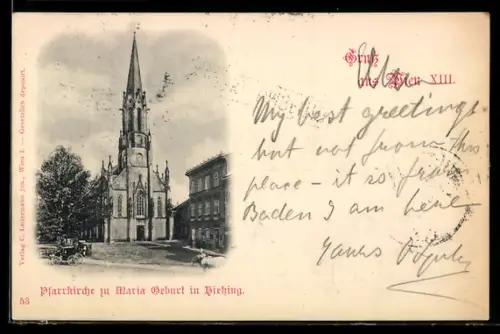 Gruß
aus Wien XIII.
My best greetings
but not from this
place - it is from
Baden I am here
Yours
Pfarrkirche zu Maria Geburt in Hietzing.
53
Verlag C. Ledermann jun., Wien I. — Gesetzlich deponirt.